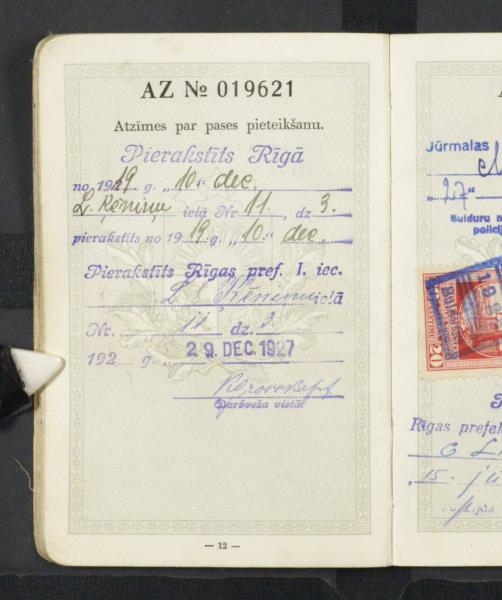 AZ № 019621
Atzīmes par pases pieteikšanu.
Pierakstīts Rīgā
no 1919 g. „10“ dec.
L. Ķēniņu ielā Nr 11, dz. 3.
pierakstīts no 1919 g. „10“ dec.
Pierakstīts Rīgas pref. I. iec.
L. Ķēniņu ielā
Nr. 11 dz. 3
192 g. 29. DEC. 1927
Darbveža vietā
— 12 —
Jūrmalas
„27“
Bulduru
policij
20
Rīgas prefek
15.